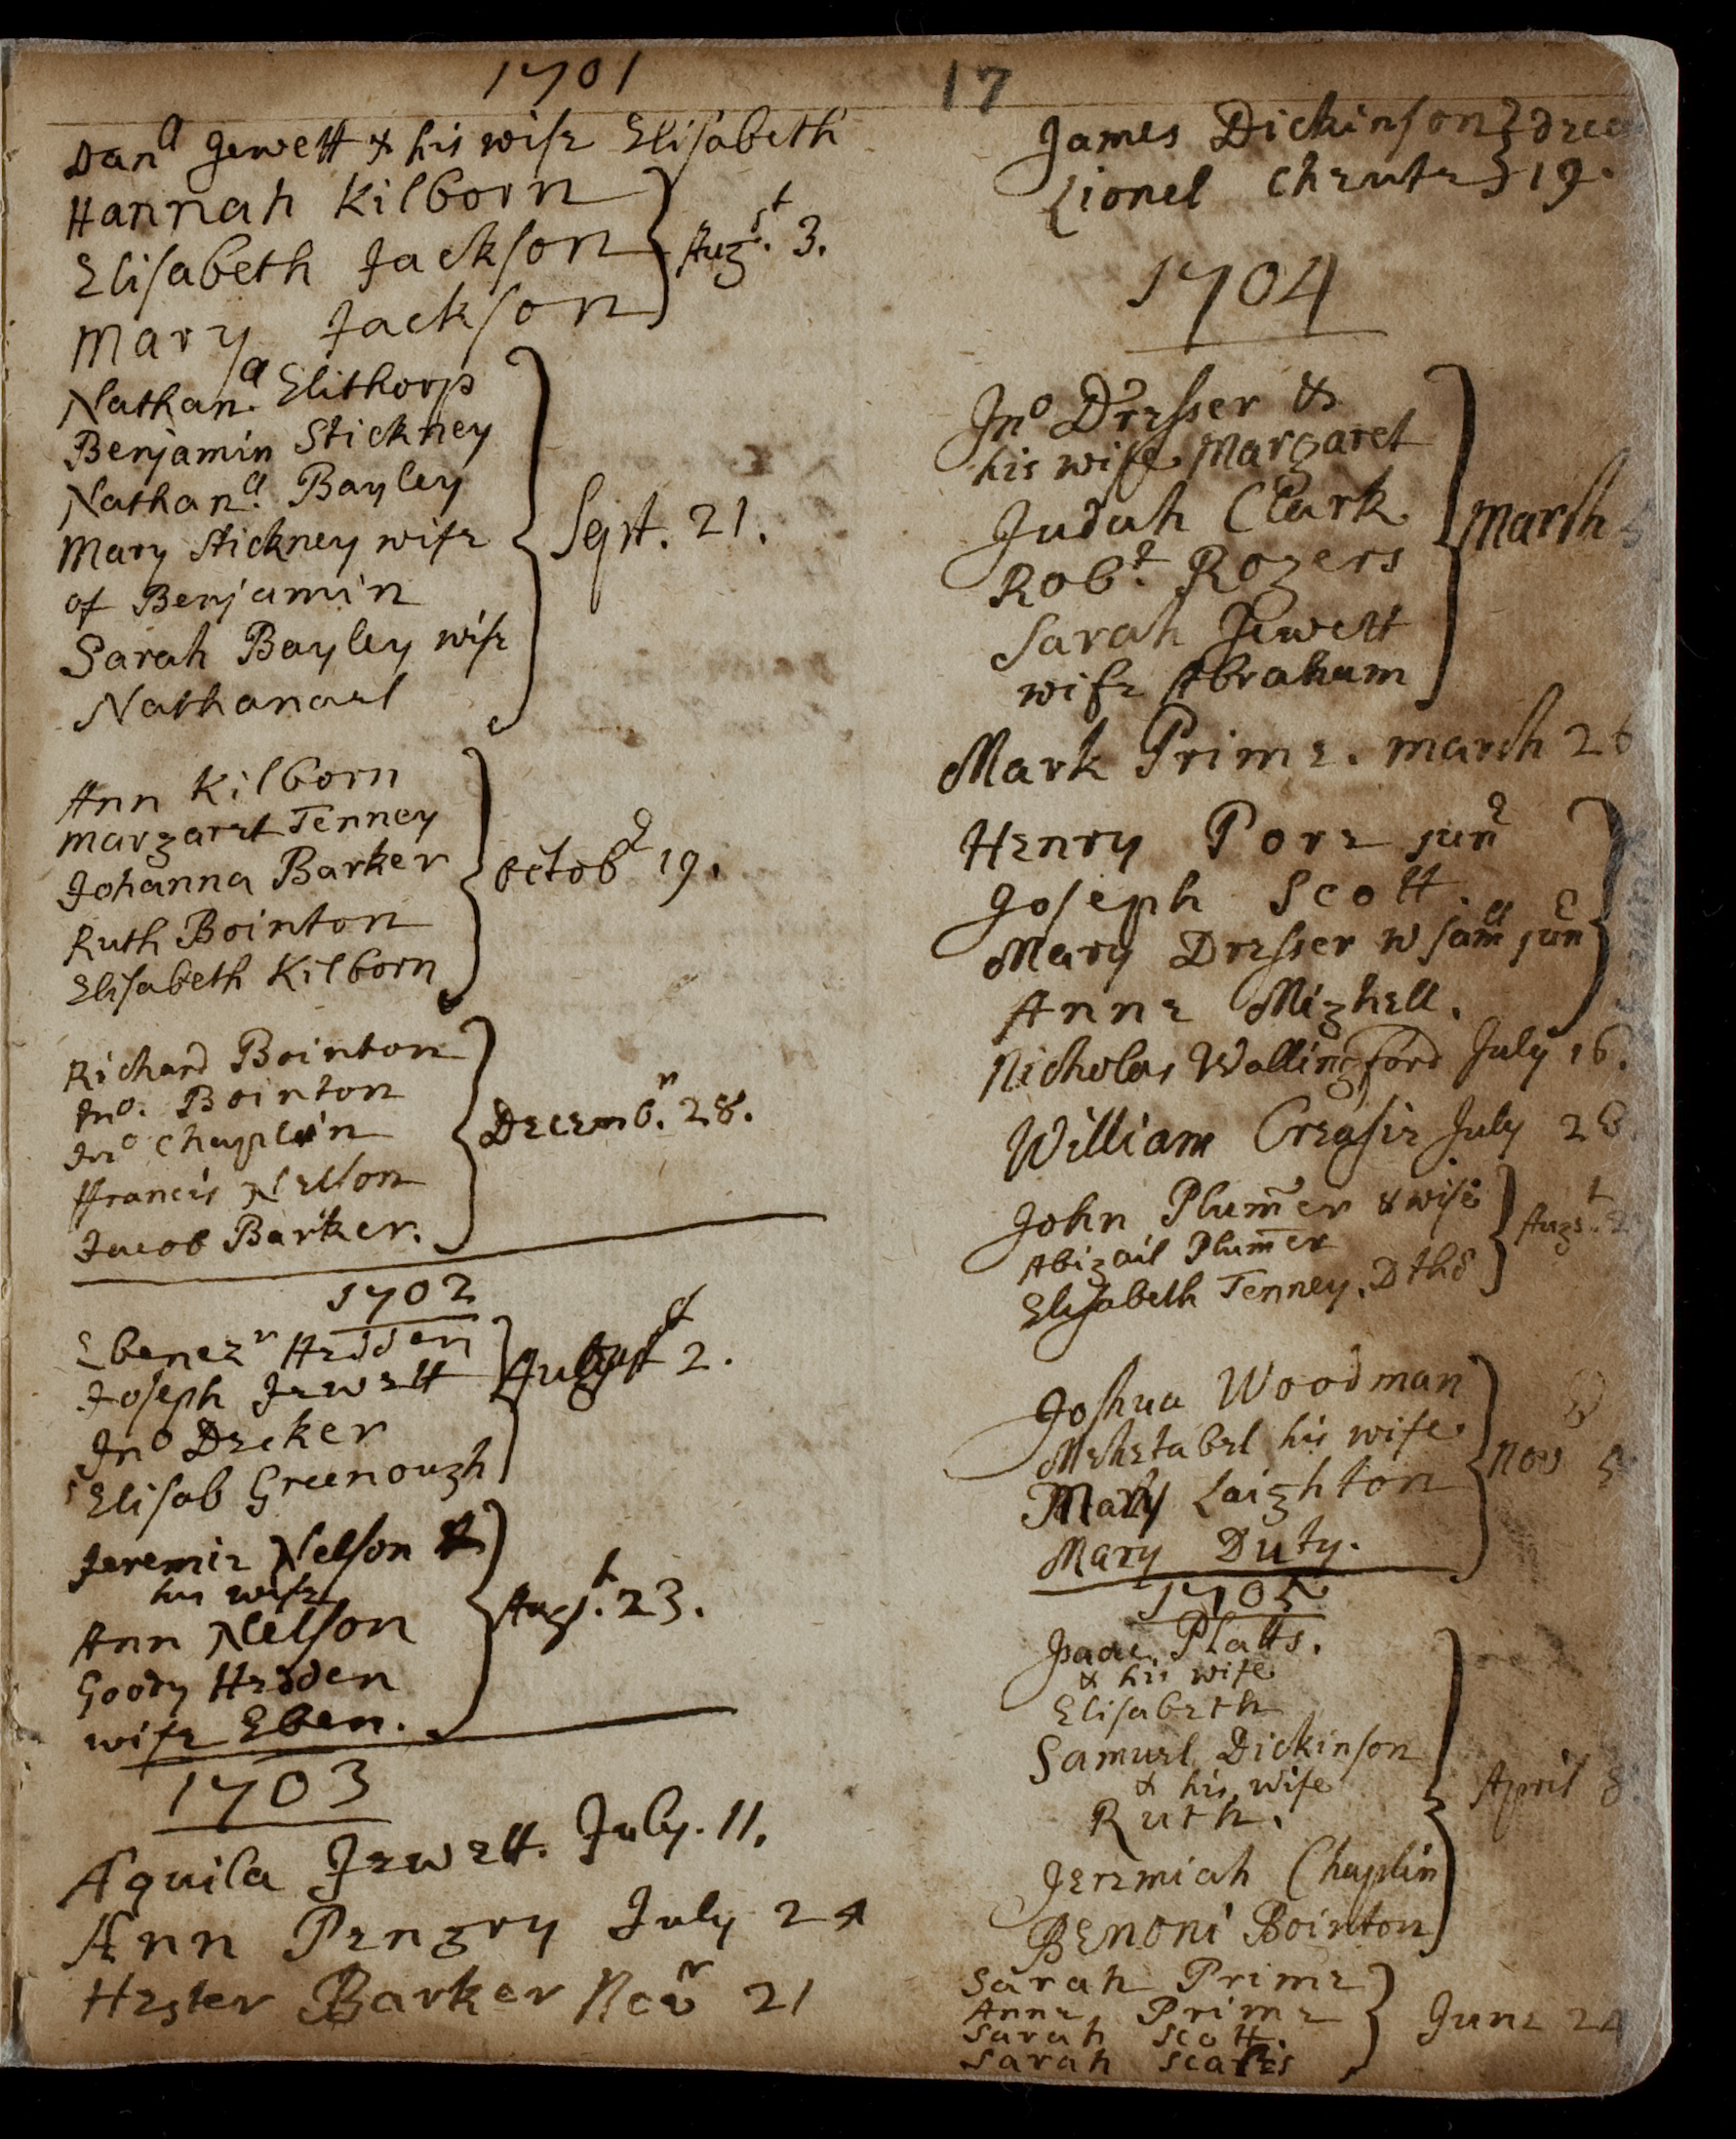 1701
Danll Jewett & his wife Elisabeth
Hannah Kilborn
Elisabeth Jackson
Mary Jackson
Augst. 3.
Nathanll. Elithorp
Benjamin Stickney
Nathanll. Bayley
Mary Stickney wife
of Benjamin
Sarah Bayley wife
Nathanael
Sept. 21.
Ann Kilborn
Margaret Tenney
Johanna Barker
Ruth Bointon
Elisabeth Kilborn
Octobr 19.
Richard Bointon
Jno. Bointon
Jno Chaplin
Francis Nelson
Jacob Barker.
Decembr. 28.
1702
Ebenezr Hedden
Joseph Jewett
Jno Decker
Elisab Greenough
2.
Jeremie Nelson &
his wife
Ann Nelson
Goody Hedden
wife Eben.
Augst. 23.
1703
Aquila Jewett. July. 11.
Ann Pengry July 24
Hester Barker Novr 21
17
James Dickinson
Lionel Cheute
19.
1704
Jno Dresser &
his wife Margaret
Judah Clark
Robt. Rogers
Sarah Jewett
wife Abraham
March
Mark Prime. march 26
Henry Pore junr
Joseph Scott.
Mary Dresser w Samll junr
Anne Mighell.
Nicholas Wallingford July 16.
William Creasie July 28.
John Plumer & wife
Abigail Plumer
Elisabeth Tenney. D tho
Augst.
Joshua Woodman
Mehetabel his wife
Mary Laighton
Mary Duty.
Nov 5
1705
Isaac Platts.
& his wife
Elisabeth
Samuel Dickinson
& his wife
Ruth.
Jeremiah Chaplin
Benoni Bointon
April 8.
Sarah Prime
Anne Prime
Sarah Scott.
Sarah
June 24